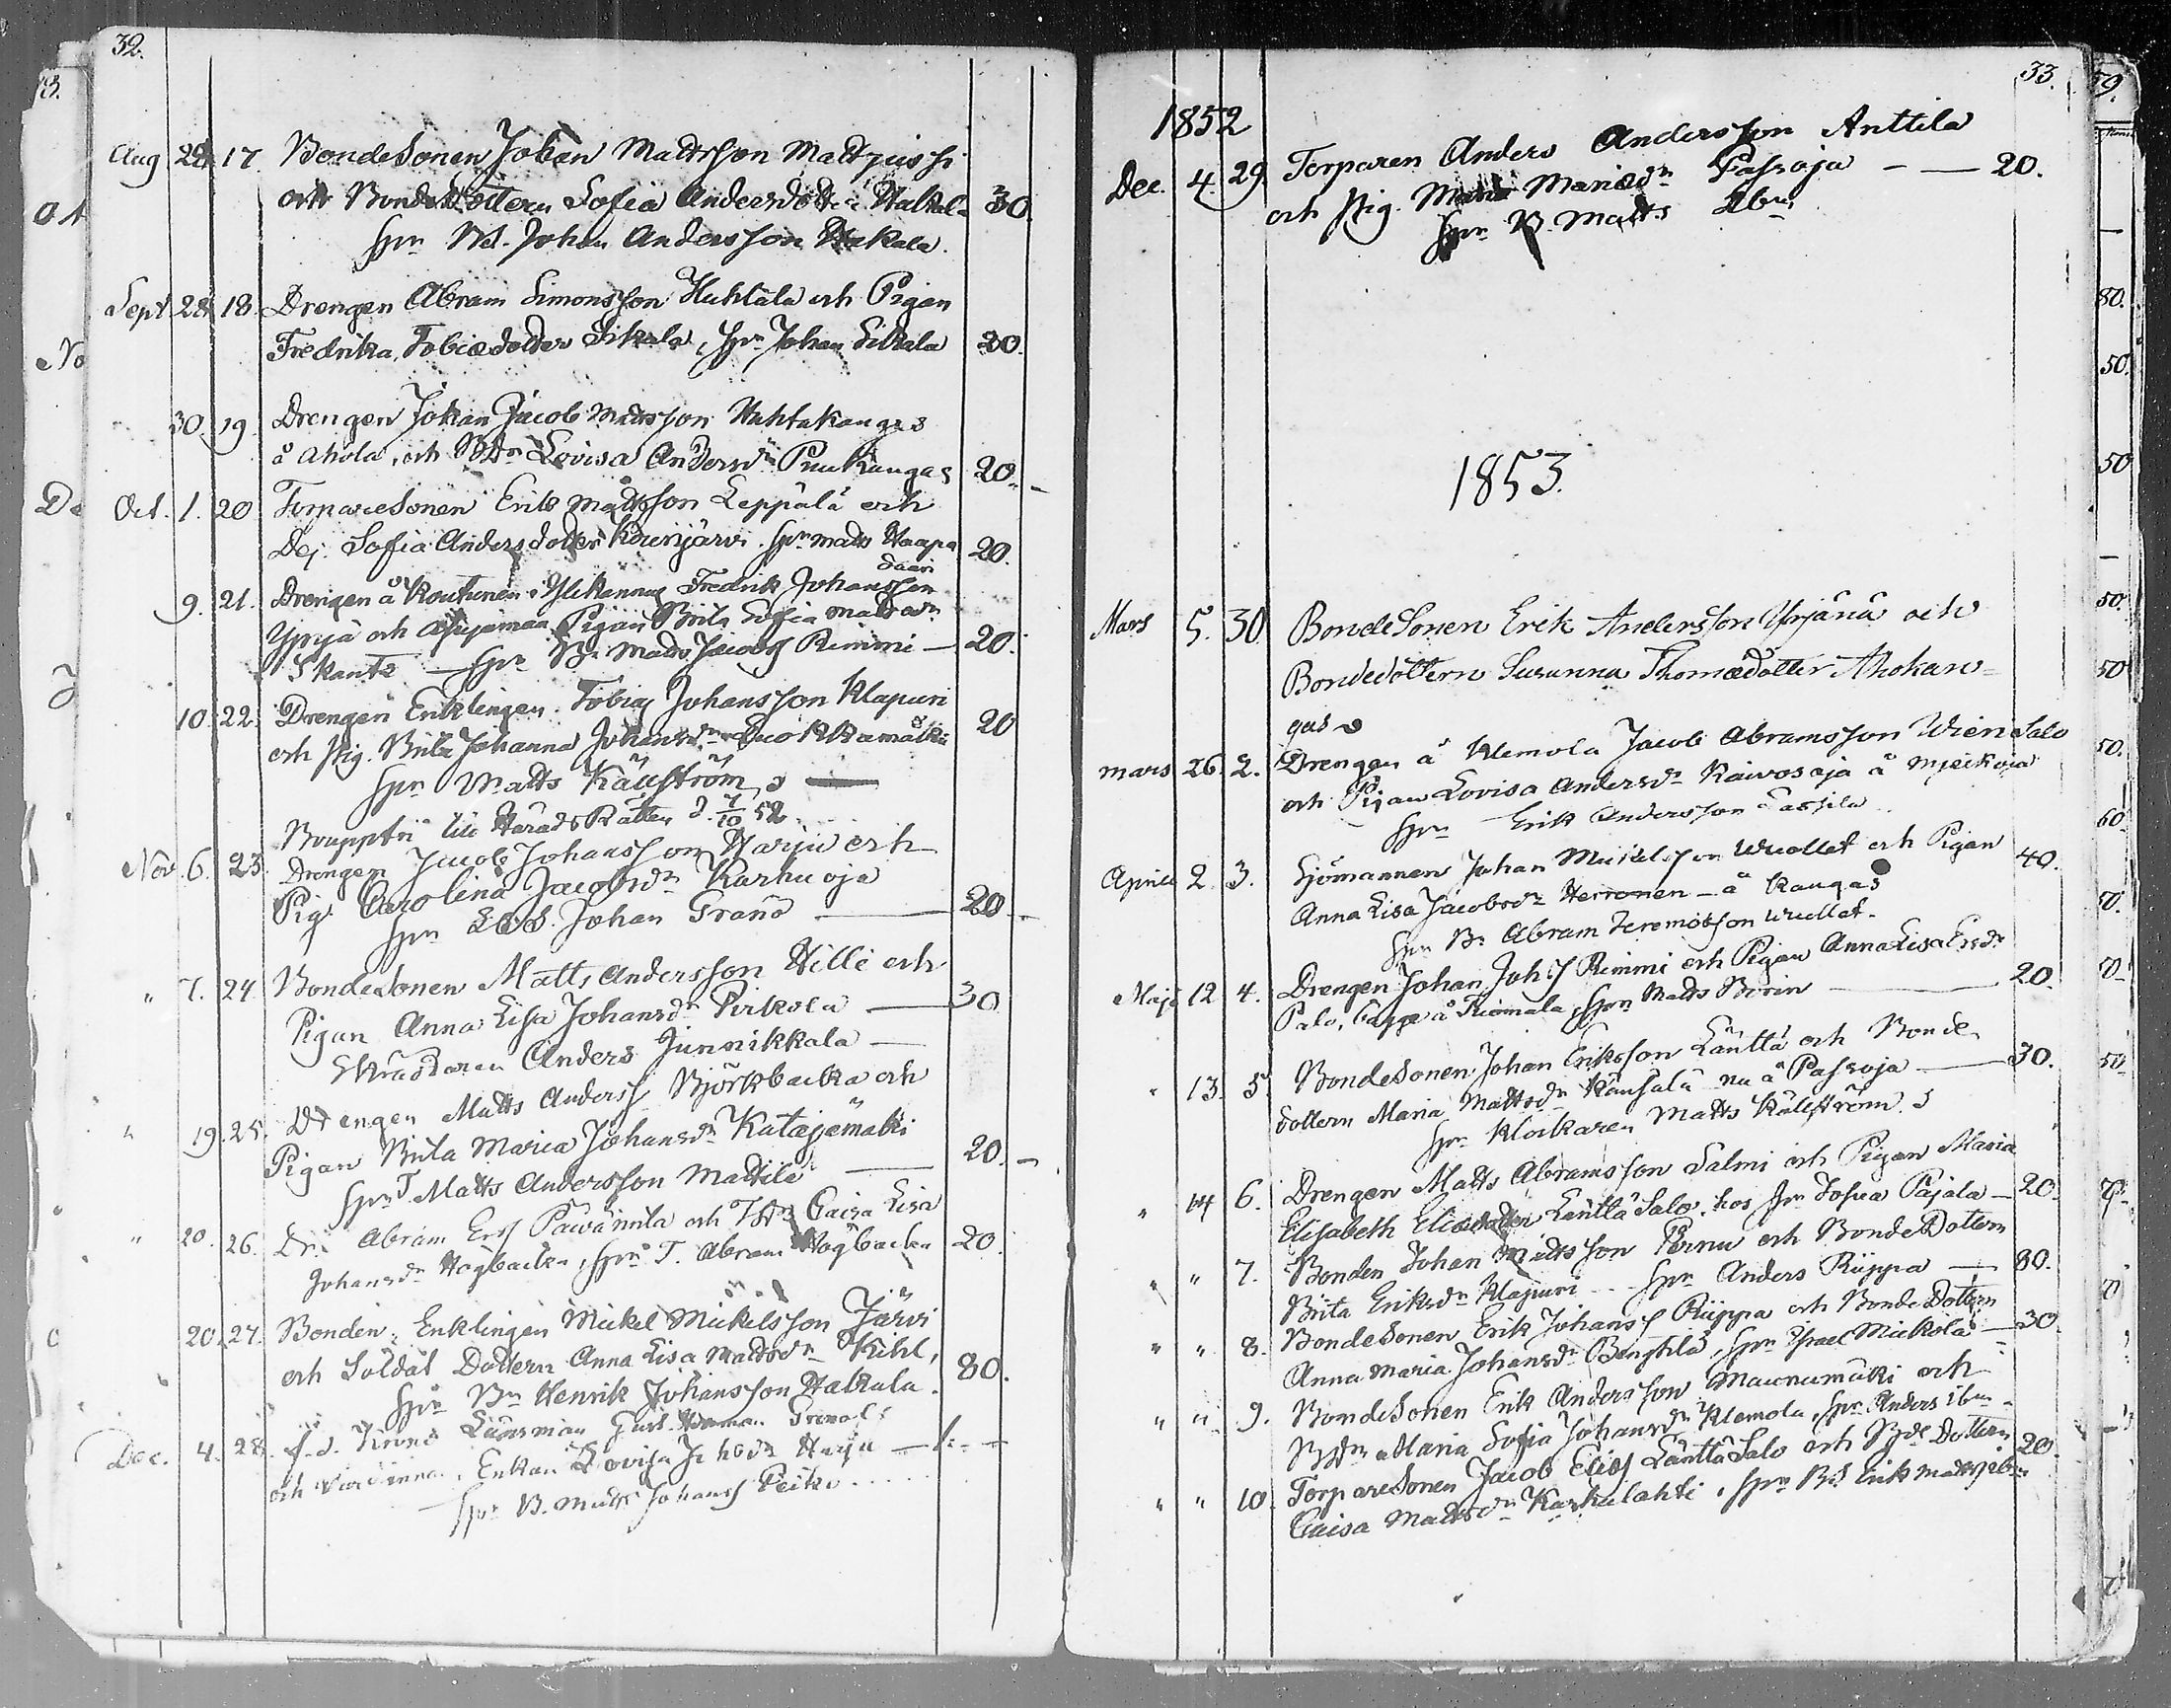 32.
Aug 28 17. BondeSonen Johan Mattsson Mattjussi
och Bondedottern Sofia Andersdotter Hakala 30.
spm Nd. Johan Andersson Hakala.
Sept. 28 18. Drengen Abram Simonsson Huhtala och Pigan
Fredrika Tobiædotter Sikala, spm Johan Sikala 20.
30. 19. Drengen Johan Jacob Mattsson Huhtakangas
å Ahola, och BDr Lovisa Andersdr Puukangas 20.
Oct. 1. 20 TorpareSonen Erik Mattsson Leppälä och
Dej. Sofia Andersdotter Kourijärvi. spm Matts Haapa 20.
daari
9. 21. Drengen å Kouhunen i Ylikannus Fredrik Johansson
Yprjä och Pigan Brita Sofia Mattsdr
Skantz — spm Bn Matts Jacobss Rimmi — 20.
10. 22. Drengen Enklingen Tobias Johansson Klapuri
och Pig. Brita Johanna Johansdr Luokkamäki 20
spm Matts Källström, s —
till HäradsRätten d. 7/10 52
Nov. 6. 23. Drengen Jacob Johansson Harju och
Pig. Carolina Jacobsdr Karhuoja
spm Johan Granö — 20 —
" 7. 24. BondeSonen Matts Andersson Hilli och
Pigan Anna Lisa Johansdr Pirkola — 30
Skräddaren Anders Junnikkala —
" 19. 25. Drengen Matts Anderss Björkbacka och
Pigan Brita Maria Johansdr Katajamäki
spm T. Matts Andersson Mattila — 20. —
" 20. 26. Dr. Abram Erss Päivärinta och TDr Caisa Lisa
Johansdr Högbacka, spm T. Abram Högbacka 20.
20. 27. Bonden, Enklingen Mickel Mickelsson Järvi
och Soldat Dottern Anna Lisa Mattsdr Kihl,
spm Bn Henrik Johansson Hakala. 80.
Dec. 4. 28. f.d. Krono Länsman Gust. Herman
och Värdinnan, Enkan Lovisa Harju — 1: —
spm B. Matts Johanss Peitso
33.
1852
Dec. 4. 29. Torparen Anders Andersson Anttila
och Pig. Maria Mariædr Passoja — — 20.
spm B. Matts Ibm
1853.
Mars 5. 30 BondeSonen Erik Andersson Yrjänä och
Bondedottern Susanna Thomædotter Ahokan=
gas
mars 26. 2. Drengen å Klemola Jacob Abramsson Wiren Salo
och Pigan Lovisa Andersdr Raivosoja å
spm Erik Andersson Lassila
Aprill 2. 3. Sjömannen Johan Mickelsson Wuollet och Pigan
Anna Lisa Jacobsdr Herronen — å Kangas 40.
spm Bn Abram Jeremiæsson Wuollet.
Maji 12 4. Drengen Johan Johs Rimmi och Pigan Anna Lisa Ersdr
Palo, å Riomala, spm Matts Birin — 20.
" 13. 5. BondeSonen Johan Eriksson Länttä och Bonde
dottern Maria Mattsdr Känsälä nu å Passoja — 30.
spm Klockaren Matts Källström. s
" 14 6. Drengen Matts Abramsson Salmi och Pigan Maria
Elisabeth Eliædotter LänttäSalo, hos spm Josua Pajala — 20
" " 7. Bonden Johan Mattsson Pernu och BondeDottern
Brita Eriksdr Klapuri — spm Anders Riippa — 80.
" " 8. BondeSonen Erik Johanss Riippa och BondeDottern
Anna Maria Johansdr Bengtilä, spm Israel Mickola — 30
" " 9. BondeSonen Erik Andersson Maunumäki och
BDr Maria Sofia Johansdr Klemola, spm Anders Ibm —
" " 10. TorpareSonen Jacob Eliæs LänttäSalo och BdeDottern 20.
Caisa Mattsdr Karhulahti, spm BS Erik Mattss Ibm